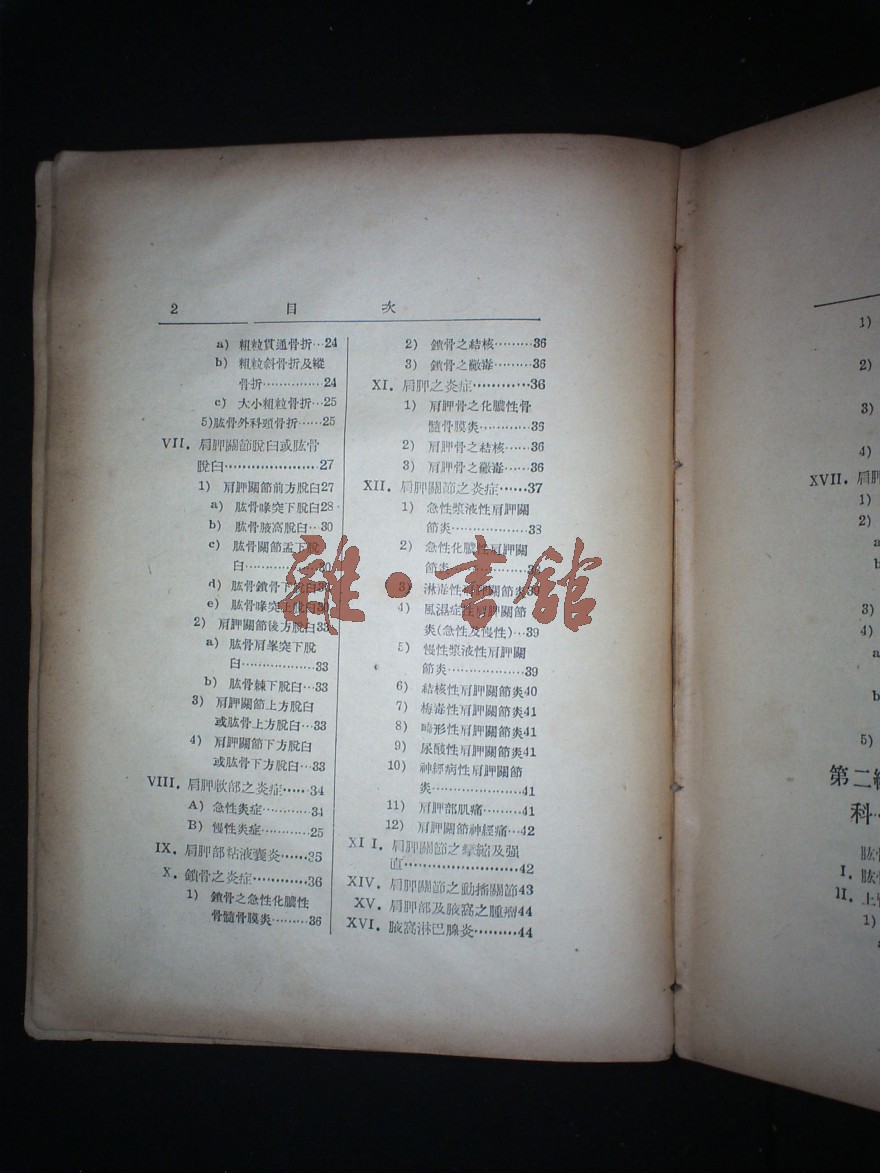 2 目 次
a) 粗粒貫通骨折…24
b) 粗粒斜骨折及縱
骨折……………24
c) 大小粗粒骨折…25
5)肱骨外科頸骨折……25
VII. 肩胛關節脫臼或肱骨
脫臼…………………27
1) 肩胛關節前方脫臼27
a) 肱骨喙突下脫臼28
b) 肱骨腋窩脫臼…30
c) 肱骨關節盂下脫
臼……………30
d) 肱骨鎖骨下脫臼
e) 肱骨喙突上脫臼30
2) 肩胛關節後方脫臼33
a) 肱骨肩峯突下脫
臼……………33
b) 肱骨棘下脫臼…33
3) 肩胛關節上方脫臼
或肱骨上方脫臼…33
4) 肩胛關節下方脫臼
或肱骨下方脫臼…33
VIII. 肩胛軟部之炎症……34
A) 急性炎症…………34
B) 慢性炎症…………25
IX. 肩胛部粘液囊炎……35
X. 鎖骨之炎症…………36
1) 鎖骨之急性化膿性
骨髓骨膜炎………36
2) 鎖骨之結核………36
3) 鎖骨之黴毒………36
XI. 肩胛之炎症…………36
1) 肩胛骨之化膿性骨
髓骨膜炎…………36
2) 肩胛骨之結核……36
3) 肩胛骨之黴毒……36
XII. 肩胛關節之炎症……37
1) 急性漿液性肩胛關
節炎………………38
2) 急性化膿性肩胛關
節炎………………38
3) 淋毒性肩胛關節炎39
4) 風濕症性肩胛關節
炎(急性及慢性)…39
5) 慢性漿液性肩胛關
節炎………………39
6) 結核性肩胛關節炎40
7) 梅毒性肩胛關節炎41
8) 畸形性肩胛關節炎41
9) 尿酸性肩胛關節炎41
10) 神經病性肩胛關節
炎…………………41
11) 肩胛部肌痛………41
12) 肩胛關節神經痛…42
XI I. 肩胛關節之攣縮及强
直……………………42
XIV. 肩胛關節之動搖關節43
XV. 肩胛部及腋窩之腫瘤44
XVI. 腋窩淋巴腺炎………44
雜·書館
1)
2)
3)
4)
XVII. 肩胛
1)
2)
a
b
3)
4)
a
b
5)
第二
科
I. 肱
II. 上
1)
a